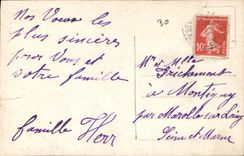 Nos Voeux les
plus sincères
pour Vous et
votre famille
famille Herr
30
10c
Mr et Mlle
Prichemont
à Montigny
par Marolles sur Seine
Seine et Marne